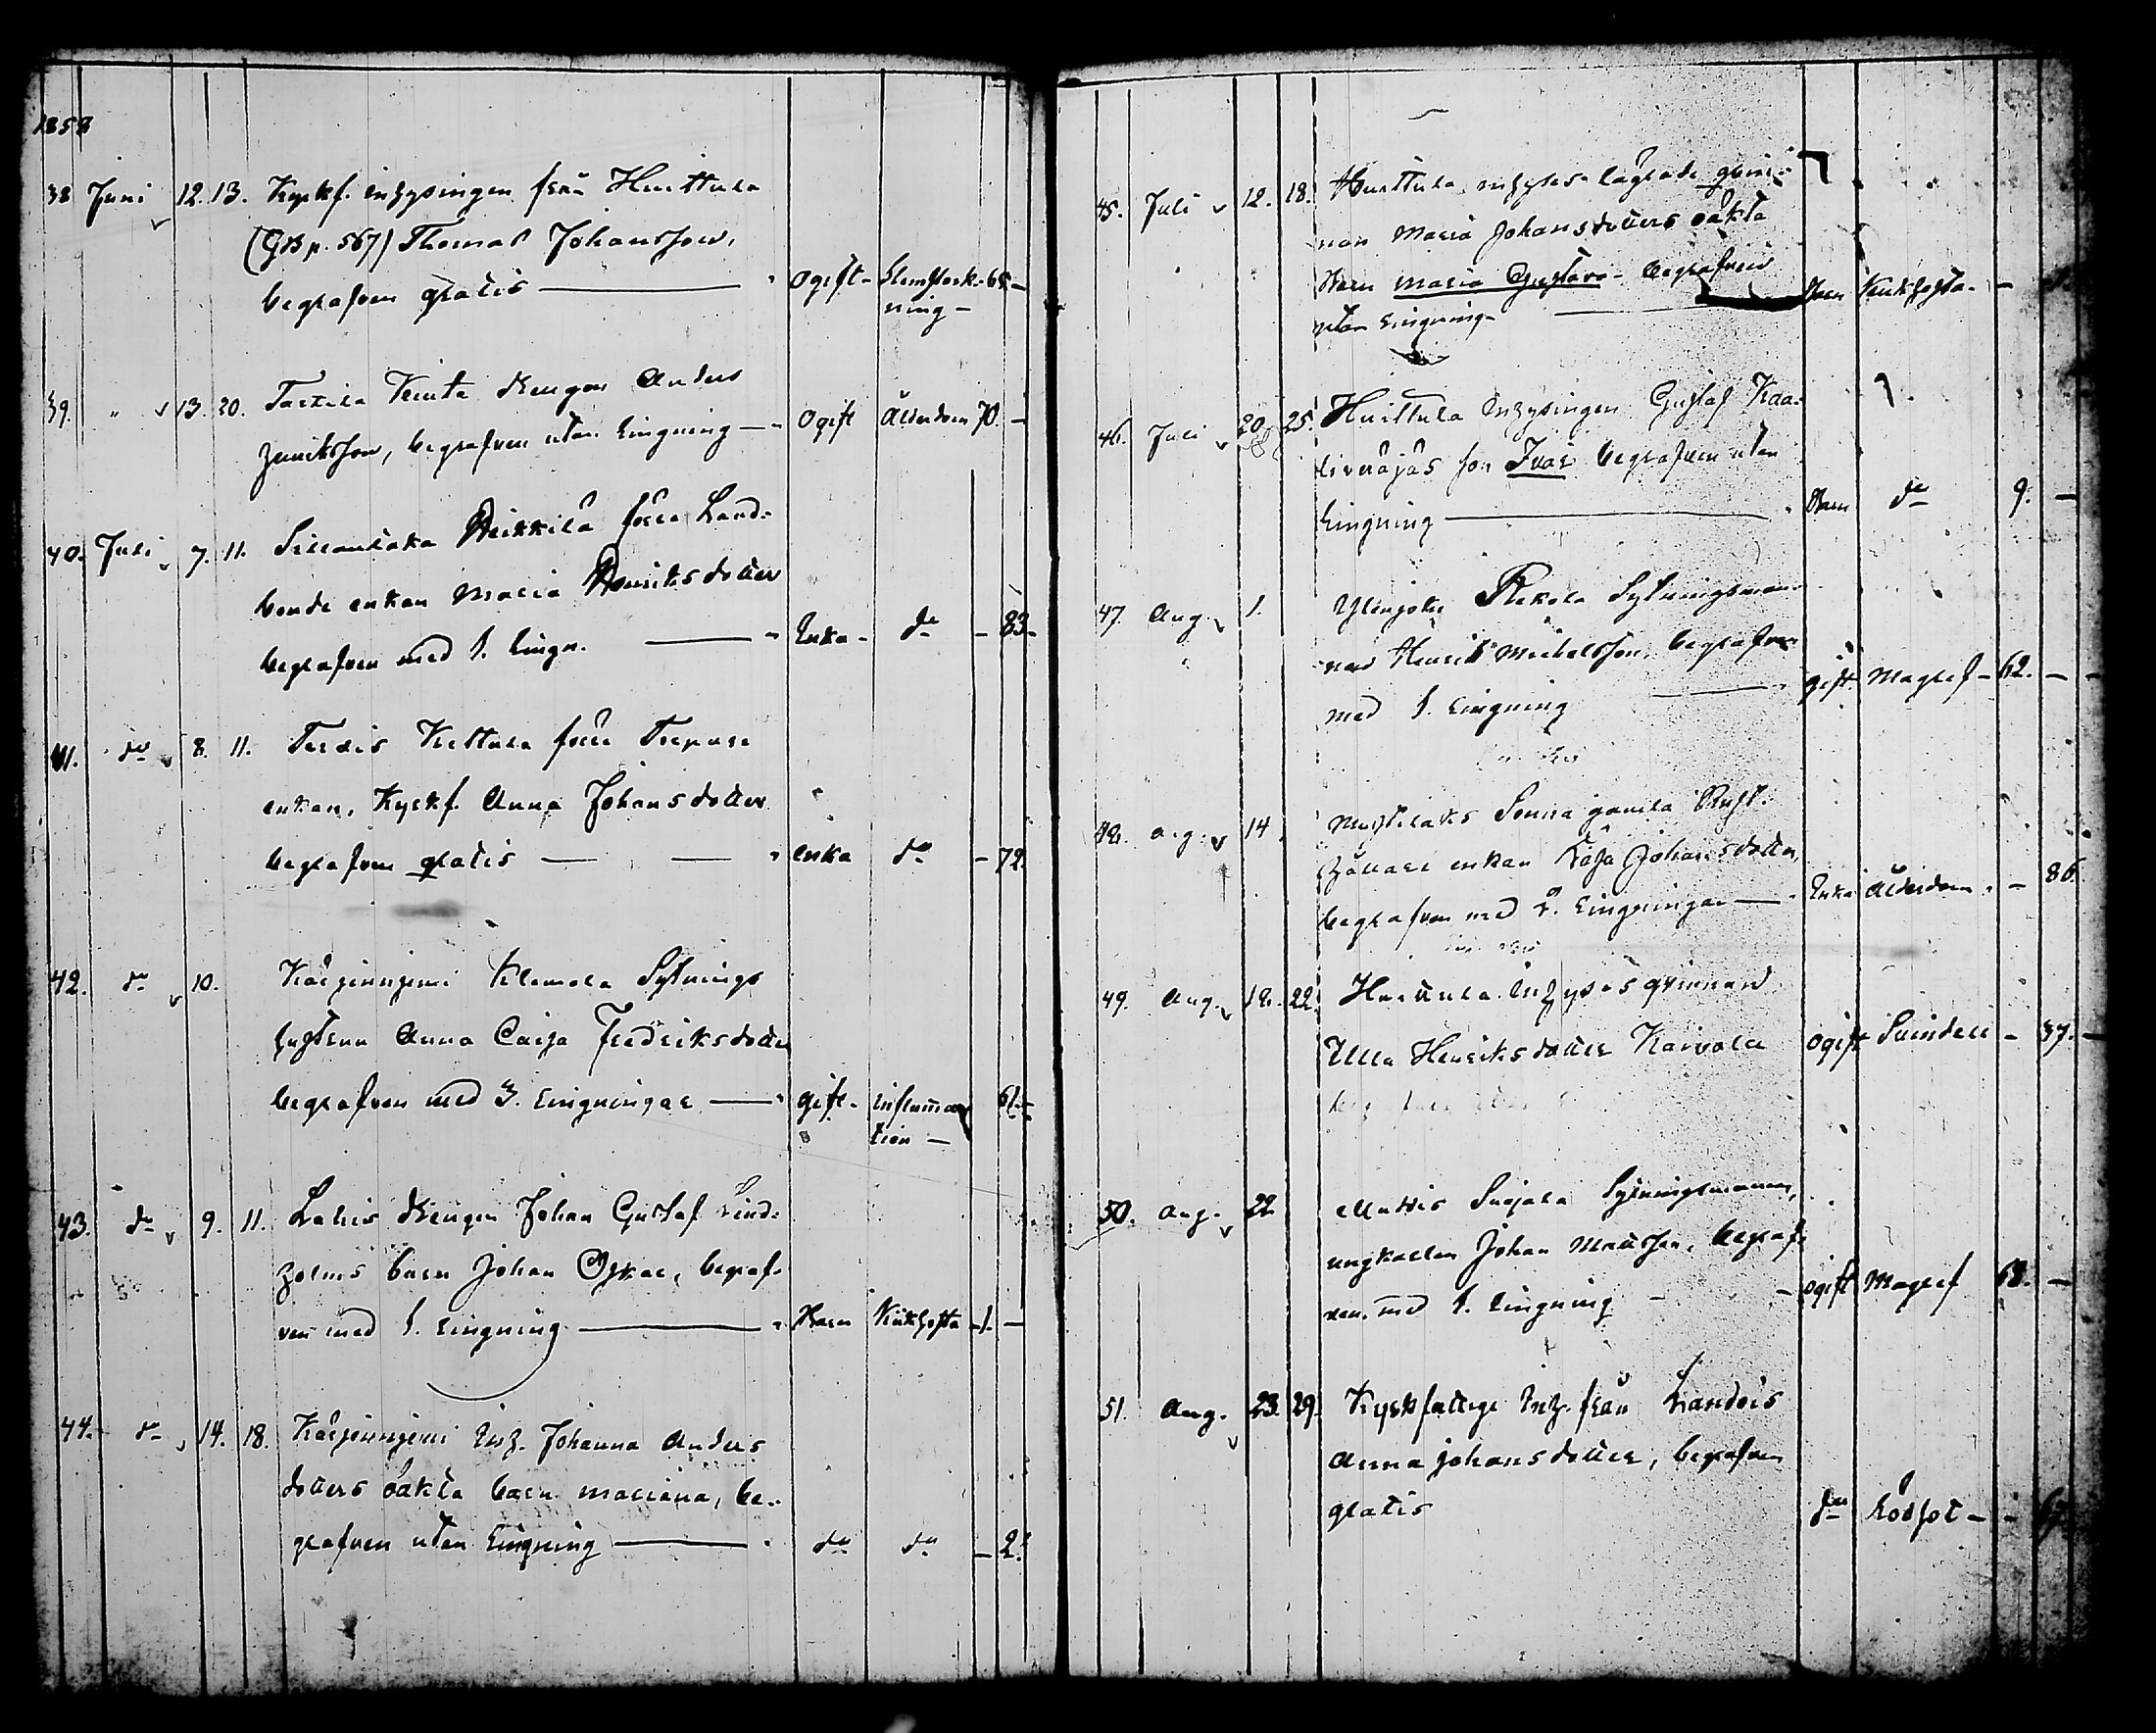 1858
38 Juni 12. 13. Kyrkf. inhysingen från Huittula
(GB p. 567) Thomas Johansson,
begrafven gratis — ogift - 65 -
ning -
39. " 13. 20. drengen Anders
Henriksson, begrafven utan Ringning — ogift Ålderdom 70. -
40. Juli 7. 11. Heikkilä förra Land-
bonde enkan Maria Henriksdotter
begrafven med 1. Ringn. — Enka - do - 83 -
41. do 8. 11. Kettula förra
enkan, Kyrkf. Anna Johansdotter
begrafven gratis — — enka do - 72.
42. do 10. Kärjenniemi Klemola Sytnings
hustrun Anna Caisa Fredriksdotter
begrafven med 3. Ringningar — gift - inflamma
tion - 61 -
43. do 9. 11. Lahis drengen Johan Gustaf Lind-
holms barn Johan Oskar, begraf-
ven med 1. Ringning — Barn Kikhosta - 1. -
44. do 14. 18. Kärjenniemi Inh. Johanna Anders
dotters oäkta barn Mariana, be-
grafven utan Ringning — do do - 2.
45. Juli 12. 18. Huittula inhyses lägrade qvin-
nan Maria Johansdotters oäkta
Barn Maria Gustava - begrafven
utan Ringning - — Barn Kikhosta. -
46. Juli 20 25. Huittula Inhysingen Gustaf Kaa-
son Ivar begrafven utan
Ringning — Barn do 9. -
47. Aug. 1. Ylenjoki Rekola Sytningsman-
nen Henrik Michelsson, begrafven
med 1. Ringning — gift. Magref - 62. -
48. Aug. 14. gamla Rust-
hållare enkan Kajsa Johansdotter,
begrafven med 2. Ringningar — Enka Ålderdom. - 86.
49. Aug. 18. 22. Huittula Inhyses qvinnan
Ulla Henriksdotter Kaivola ogift - 37. -
50. Aug. 22 Mattis Suojala Sytningsmannen,
ungkarlen Johan Mattsson, begraf-
ven med 1. Ringning - ogift Magref 68. -
51. Aug. 23. 29. Kyrkfattige Inh. från
Anna Johansdotter, begrafven
gratis do Rödsot - -